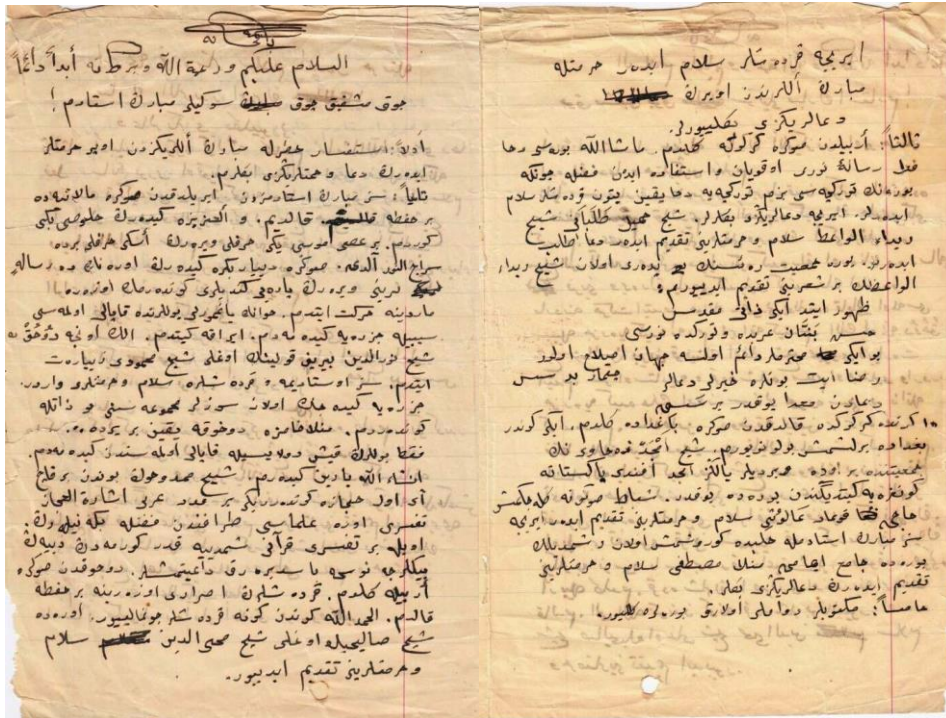 باسمه سبحانه
السلام عليكم ورحمة الله وبركاته أبداً دائماً
چوق مشفق چوق سوكيلى مبارك استادم!
أولاً: استفسار خاطرله مبارك أللريكزدن اوپر حرمتلر
ايدهرك دعا وهمتلريكزى بكلرم.
ثانياً: سز مبارك استادمزدن آيريلدقدن صوكره مالاتيهده
بر هفته قالديم. و العزيزه كيدهرك خلوصى بكى
كوردم. بر عصاى موسى يكى حرفلى ويرهرك أسكى حرفلى برده
سراج النور آلدم. صوكره دياربكره كيدهرك اورهنك ده رساله
لرينى ويرهرك يارهيى كنديلرى كوندهرمك اوزره
ماردينه حركت ايتدم. حوالى ياغمورلى يوللرده قاپالى اولمهسى
سببيله جزرهيه كيدهمهدم. ايراقه كيتدم. الك اوڭجه دوخوقده
شيخ نورالدين بيريفقانينك اوغلى شيخ محمودى زيارت
ايتدم. سز اوستاديمه و قردهشلره سلام وحرمتلرى واردر.
جزرهيه كيدهجك اولان سوزلر مجموعهسنى بو ذاتله
كوندهردم. دوخوقه يقين بر يردهده
فقط يوللرك قيش دولاييسيله قاپالى اولمهسندن كيدهمهدم.
ان شاء الله يازين كيدهرم. شيخ ممدوحك بوندن بر قاچ
آى اول حجازه كوندهرديكى بر عدد عربى اشارة الاعجاز
تفسيرى اوزره علماسى طرفندن
اويله بر تفسيرى قرآنى شمدىيه قدر كورمهدك دييهرك
بيكلرجه نسخه باصديرهرق داغيتمشلر. دوخوقدن صوكره
أربيله كلدم. قردهشلرك اصرارى اوزرينه بر هفته
قالدم. الحمد الله كوندن كونه قردهشلر چوغالييور. اورهده
شيخ صالحيله اوغلى شيخ محى الدين سلام
وحرمتلرينى تقديم ايدييور.
آيريجه قردهشلر سلام ايدهر حرمتله
مبارك أللرندن اوپهرك
دعالريكزى بكلييورلر.
ثالثاً: أربيلدن صوكره كركوكه كلدم. ماشاالله بورهسى دها
فضله رساله نورى اوقويان واستفاده ايدن فضله چونكه
بورهنك توركچهسى بزم توركچهيه دها يقين بتون قردهشلر سلام
ايدهرلر. آيريجه دعالريكزى بكلرلر. شيخ جميل طالبانى شيخ
رضا الواعظ سلام وحرمتلرينى تقديم ايدهر دعا طلب
ايدهرلر. بوره جمعيت رئيسنك پدرى اولان شيخ رضاء
الواعظك بر شعرينى تقديم ايدييورم:
ظهور ايتدى ايكى ذاتى مقدس
حسن بنّان عربده وتوركده نورسى
بو ايكى محترملر دائم اولسه جهان اصلاح اولور
رضا ايت بونلره خيرلى دعالر
دعادن معدا يوقدر بر كس
١٠ كونده كركوكده قالدقدن صوكره باغداده كلدم. ايكى كوندر
بغدادده يرلشمش بولونويورم. شيخ أمجد زهاوى نك
جمعيتنده بر اوده ويرديلر يالكز امجد أفندى پاكستانه
كونفرهيه كيتديكندن بورهده يوقدر. شباط صوڭونه كلهجكمش
سلام وحرمتلرينى تقديم ايدهر آيريجه
سز مبارك استادمله حلبده كوروشمش اولان وشمديلك
بورهده جامع امامى منلا مصطفى سلام وحرمتلرينى
تقديم ايدهرك دعالريكزى بكلر.
خامساً: مكتوبلر دواملى اولارق بورهلره كلييور.